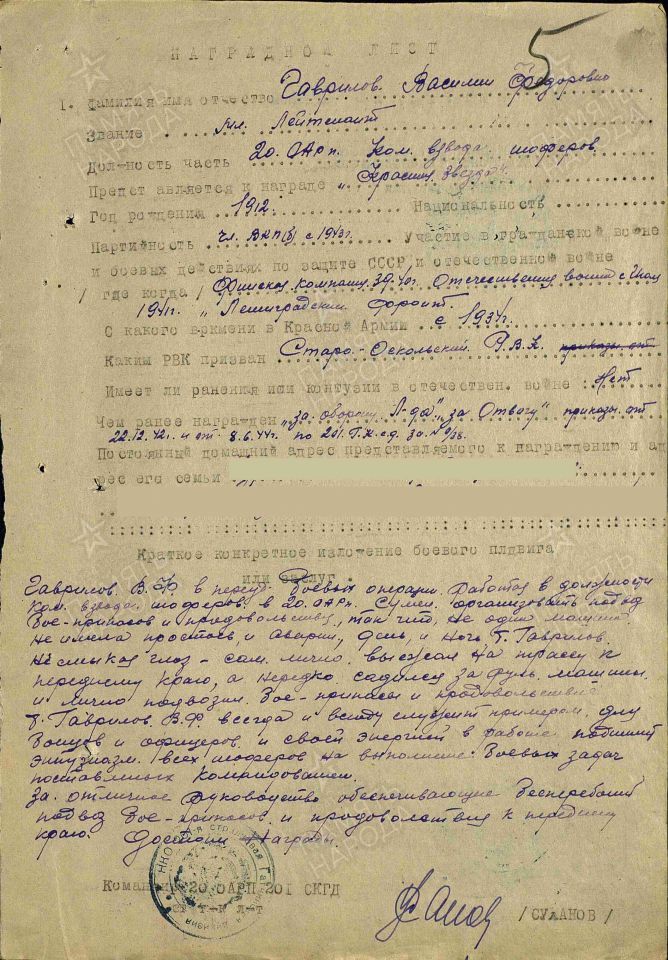 5
НАГРАДНОЙ ЛИСТ
1. Фамилия имя отчество Гаврилов Василии Федорович
Звание мл. Лейтенант
Должность часть 20. ОАрп. Ком. взвода шоферов
Предст авляется к награде "Красная Звезда"
Год рождения 1912. Национальность
Партийность чл. ВКП(б) с 1943г. Участие в гражданской войне
и боевых действиях по защите СССР и отечественной войне
/ где когда / Финская компания 39-40г. Отечественная с
1941г. "Ленинградский фронт
С какого времени в Красной Армии с 1934г.
Каким РВК призван Старо-Оскольский Р.В.К.
Имеет ли ранения или контузии в отечествен. войне: Нет
Чем ранее награжден "за оборону Л-да", "за Отвагу" приказы от
22.12.42г. и от 8.6.44г. по 201.Г.К.с.д. за №
Постоянный домашний адрес представляемого к награждению и ад
рес его семьи
Краткое конкретное изложение боевого подвига
или заслуг
Гаврилов. В.Ф. в период боевых операции. Работая в должности
Ком. взвода шоферов в 20.ОАРп. Сумел организовать подвоз
Бое-припасов и продовольствия, так что, не один машина
не имела простоев и аварии, день, и ночь Т. Гаврилов.
Не смыкая глаз - сам лично, выезжал на трассу к
переднему краю, а нередко садился за руль машины
и лично подвозил Бое-припасы и продовольствие
Т. Гаврилов. В.Ф всегда и всюду служит примером для
Бойцов и офицеров и своей энергией в работе
энтузиазм всех шоферов на выполнение Боевых задач
поставленных командованием.
За отличное руководство обеспечивающие бесперебойный
подвоз Бое-припасов и продовольствия к переднему
краю. Достоин Награды.
Командир 20 ОАРП 201 СКГД
/ СУЛАНОВ /